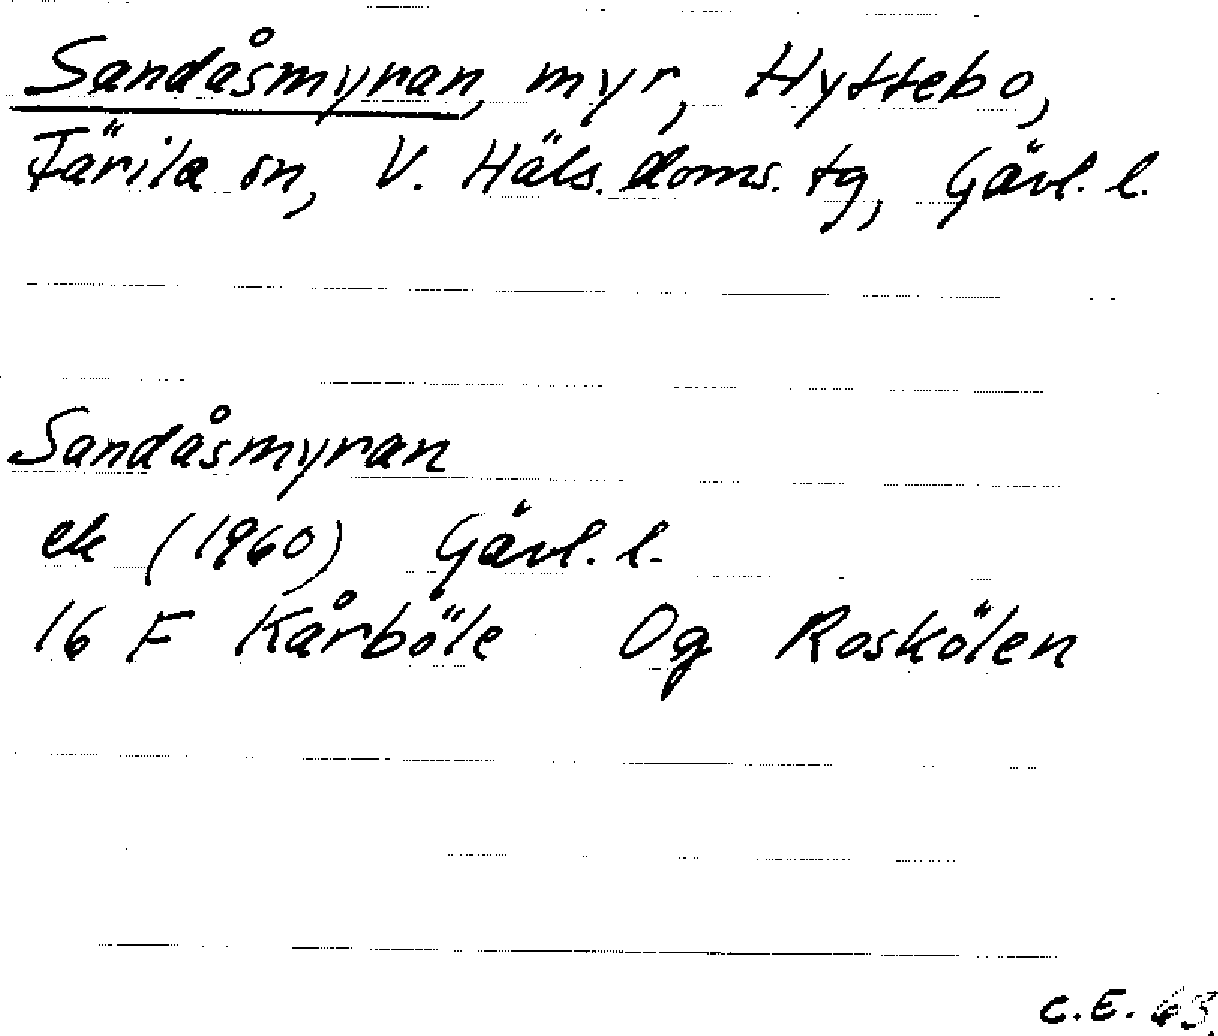 Sandåsmyran, myr, Hyttebo,
Färila sn, V. Häls. doms. tg, Gävl. l.
Sandåsmyran
ek (1960) Gävl. l.
16 F Kårböle Og Roskölen
C.E. 63